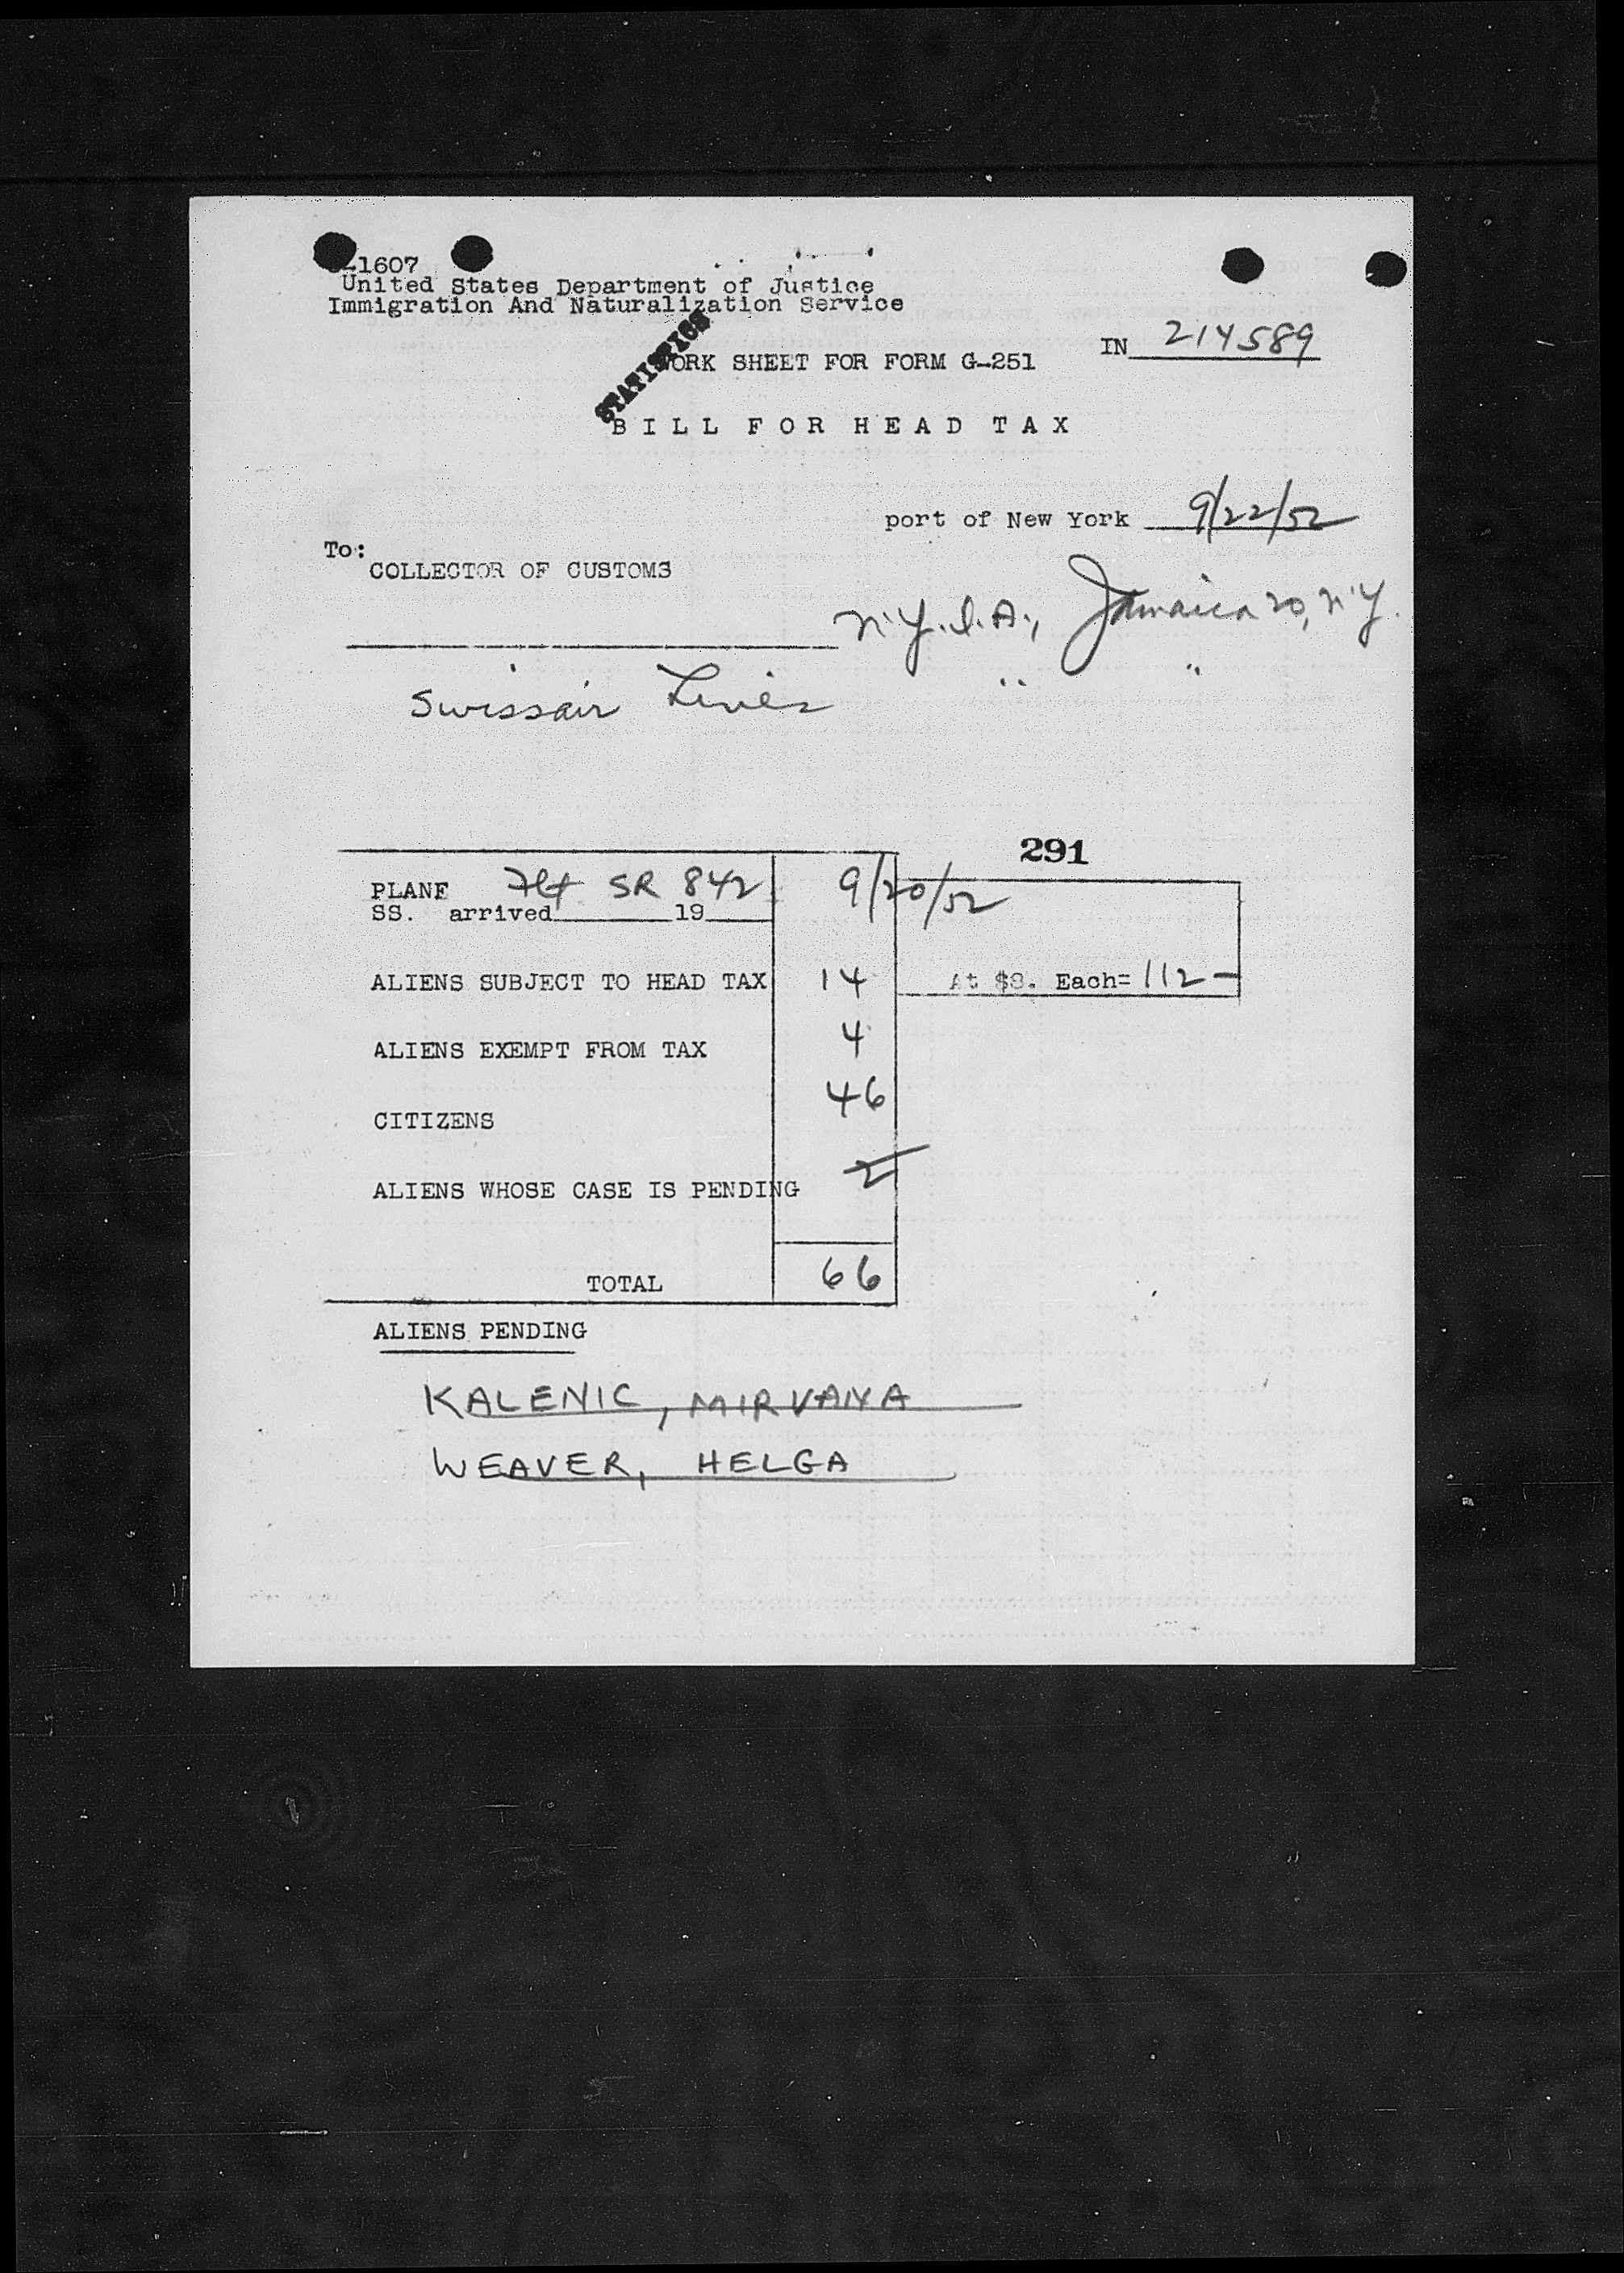 -1607
United States Department of Justice
Immigration And Naturalization Service
STATISTICS
IN 214589
WORK SHEET FOR FORM G-251
BILL FOR HEAD TAX
port of New York 9/22/52
To:
COLLECTOR OF CUSTOMS
N.Y.I.A., Jamaica 20, N.Y.
Swissair Lines " "
291
PLANE Flt SR 842 9/20/52
SS. arrived 19
ALIENS SUBJECT TO HEAD TAX 14 At $8. Each= 112-
ALIENS EXEMPT FROM TAX 4
CITIZENS 46
ALIENS WHOSE CASE IS PENDING 2
TOTAL 66
ALIENS PENDING
KALENIC, MIRVANA
WEAVER, HELGA